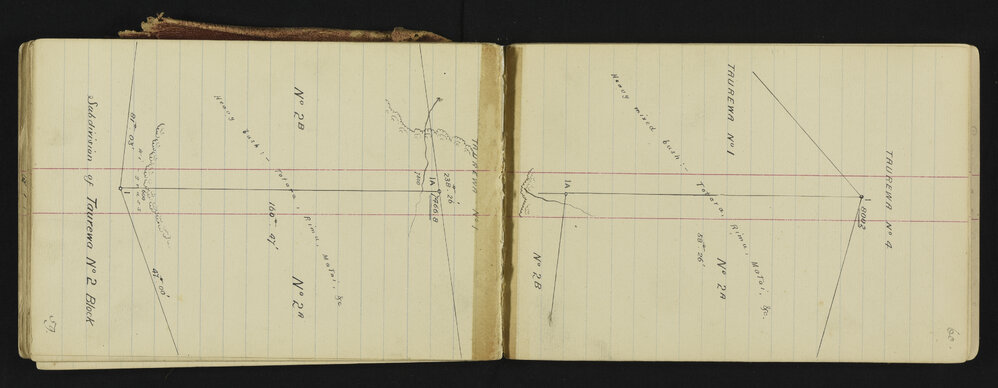 Subdivision of Taurewa No 2 Block
59.
81° 03'
47° 00'
1
No 2B
No 2A
Heavy bush:- Totara, Rimu, Matai, &c
160° 47'
TAUREWA No 1
238° 26'
1A
700
7966.8
60.
TAUREWA No 4
TAUREWA No 1
1
Heavy mixed bush:- Totara, Rimu, Matai, &c.
58° 26'
No 2A
1A
No 2B